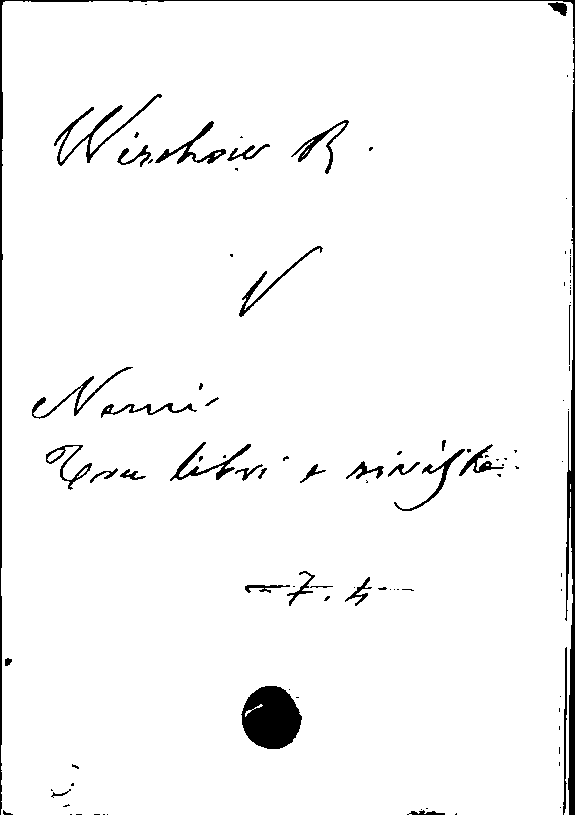 Wirchow R.
V
Nenni
Tra libri e riviste
7. 4